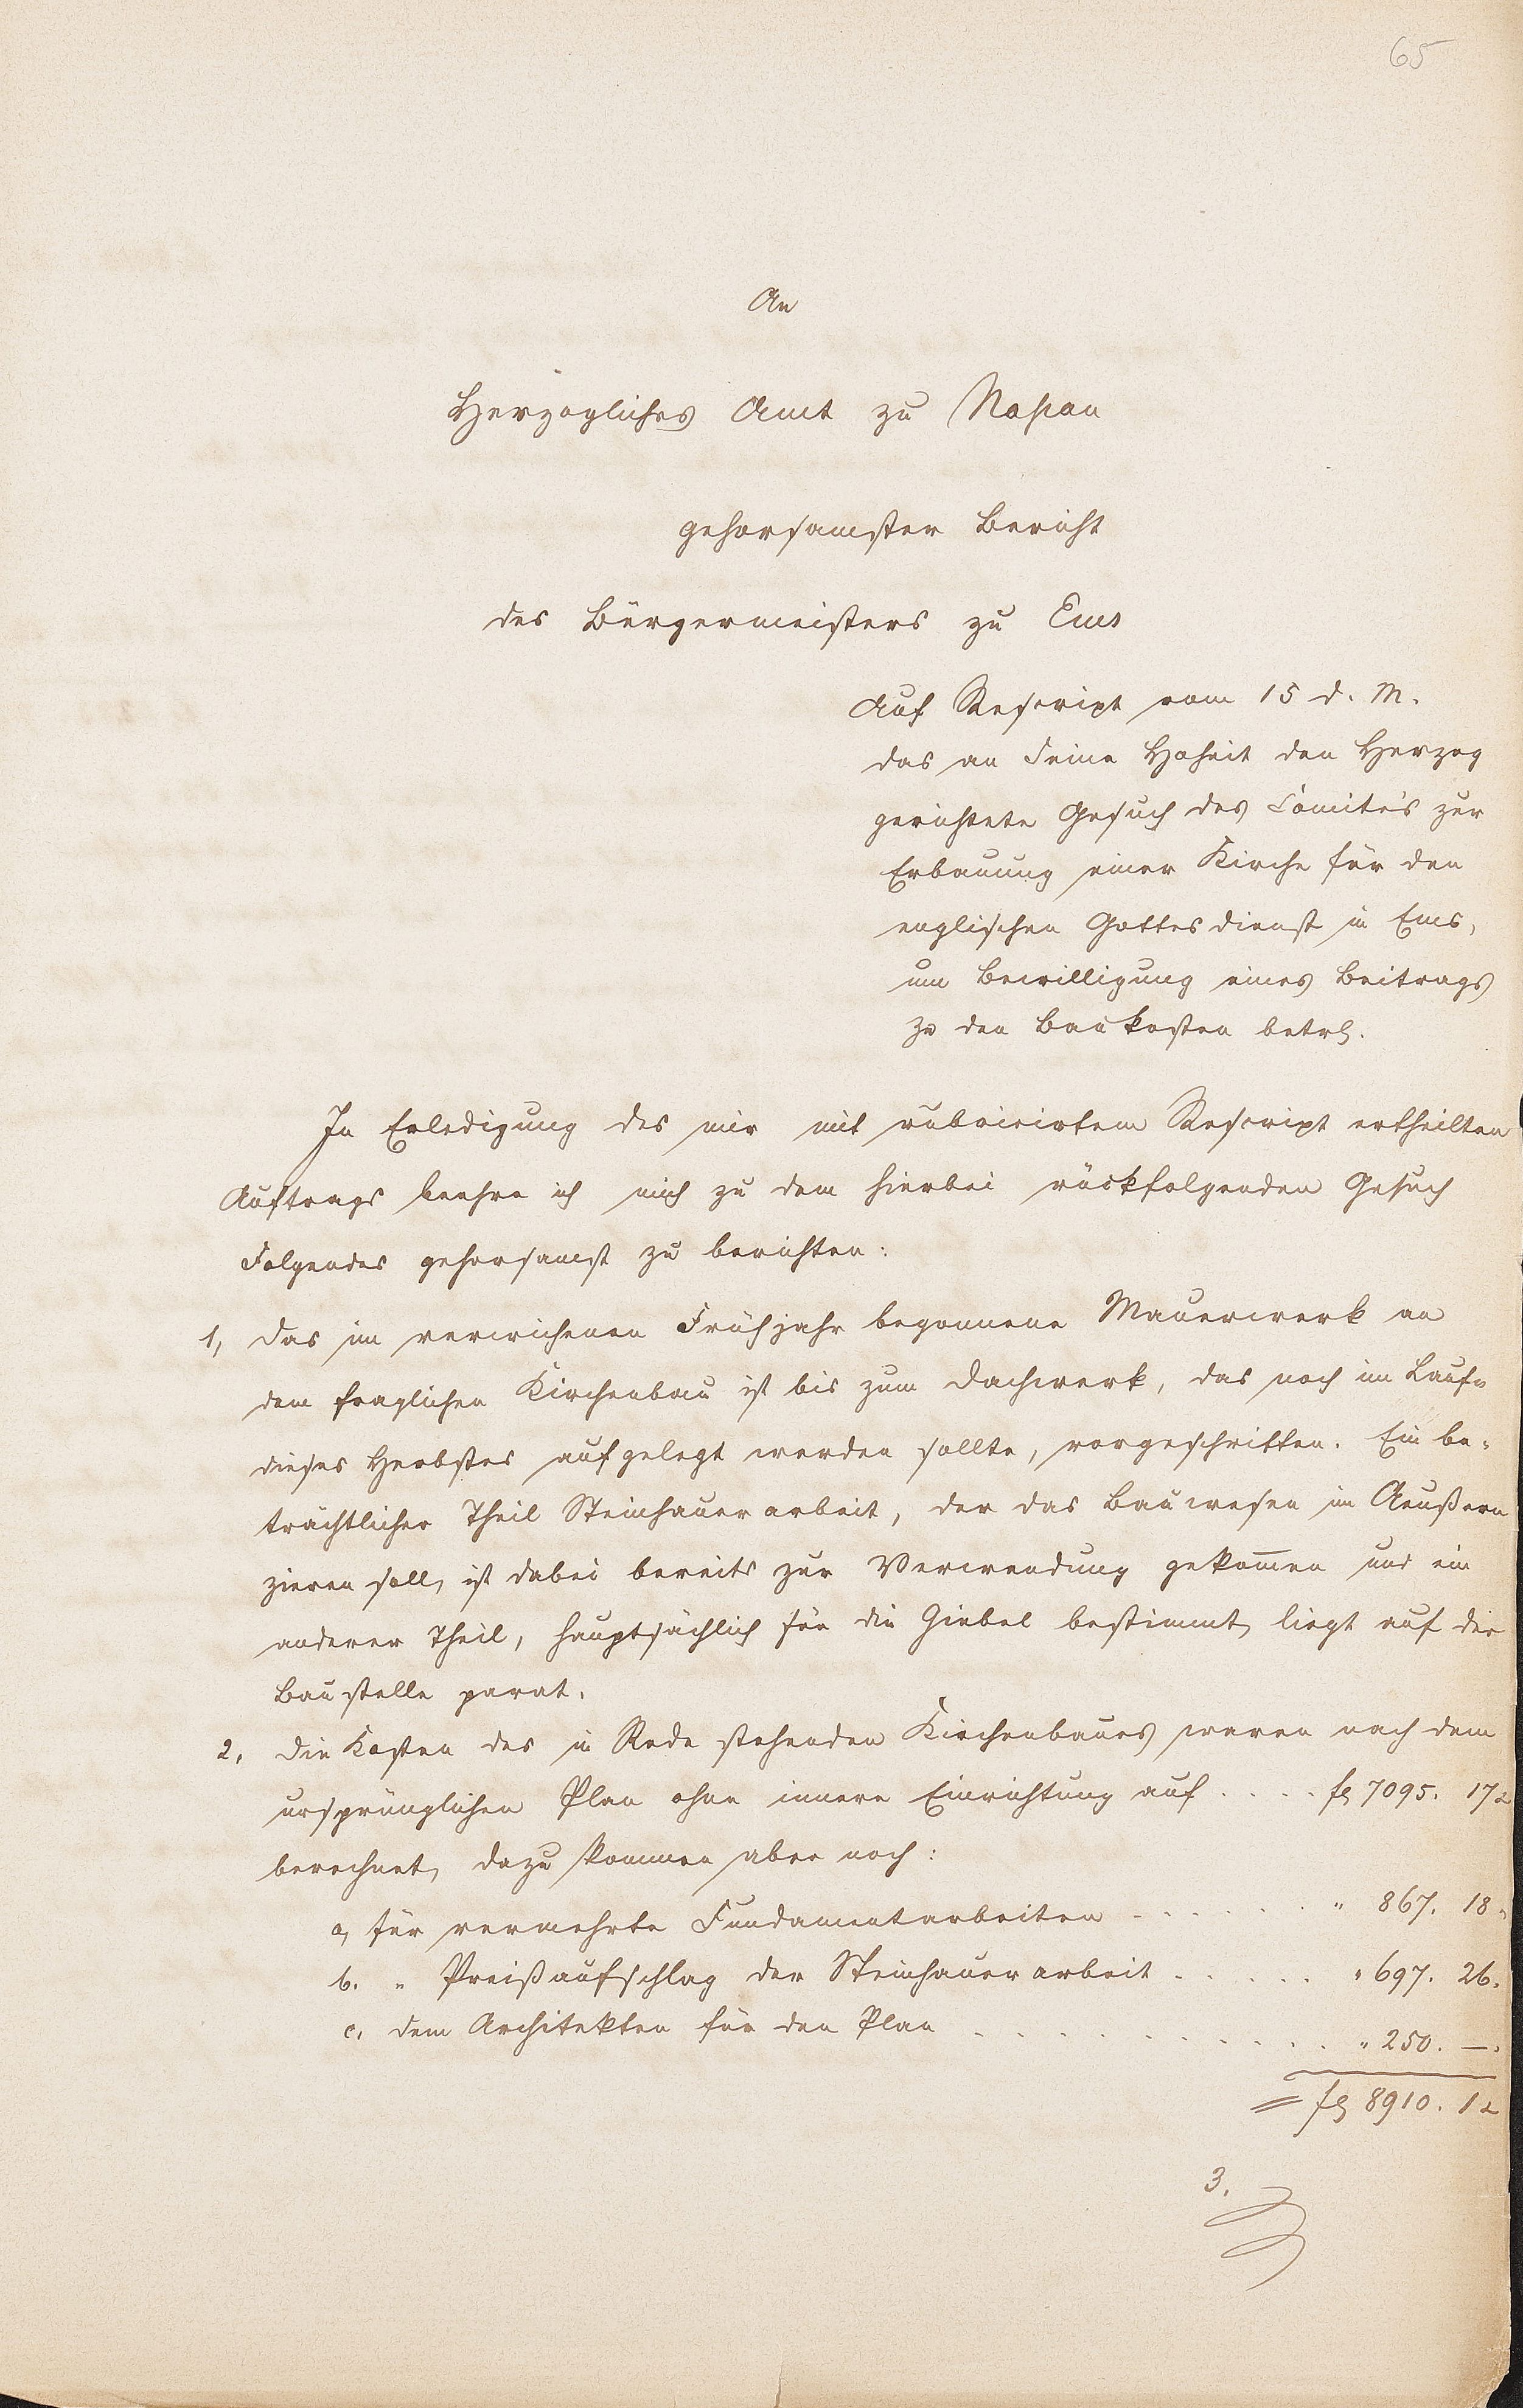 65
An
Herzogliches Amt zu Nassau
gehorsamster Bericht
des Bürgermeisters zu Ems
Auf Rescript vom 15 d. M.
das an Seine Hoheit den Herzog
gerichtete Gesuch des Comité's zur
Erbauung einer Kirche für den
englischen Gottesdienst in Ems,
um Bewilligung eines Beitrags
zu den Baukosten betr.
In Erledigung des mir mit rubricirtem Rescript ertheilten
Auftrags beehre ich mich zu dem hierbei rückfolgenden Gesuch
Folgendes gehorsamst zu berichten:
1, Das im verwichenen Frühjahr begonnene Mauerwerk an
dem fraglichen Kirchenbau ist bis zum Dachwerk, das noch im Laufe
dieses Herbstes aufgelegt werden sollte, vorgeschritten. Ein be-
trächtlicher Theil Steinhauerarbeit, der das Bauwesen im Aeußern
zieren soll, ist dabei bereits zur Verwendung gekommen und ein
anderer Theil, hauptsächlich für die Giebel bestimmt, liegt auf der
Baustelle parat.
2, Die Kosten des in Rede stehenden Kirchenbaues waren nach dem
ursprünglichen Plan ohne innere Einrichtung auf . . . . fl 7095. 17
berechnet, dazu kommen aber noch:
a, für vermehrte Fundamentarbeiten . . . . . . " 867. 18
b. " Preißaufschlag der Steinhauerarbeit . . . . . " 697. 26.
c. dem Architekten für den Plan . . . . . . . . . . " 250. —.
= fl 8910. 1
3.